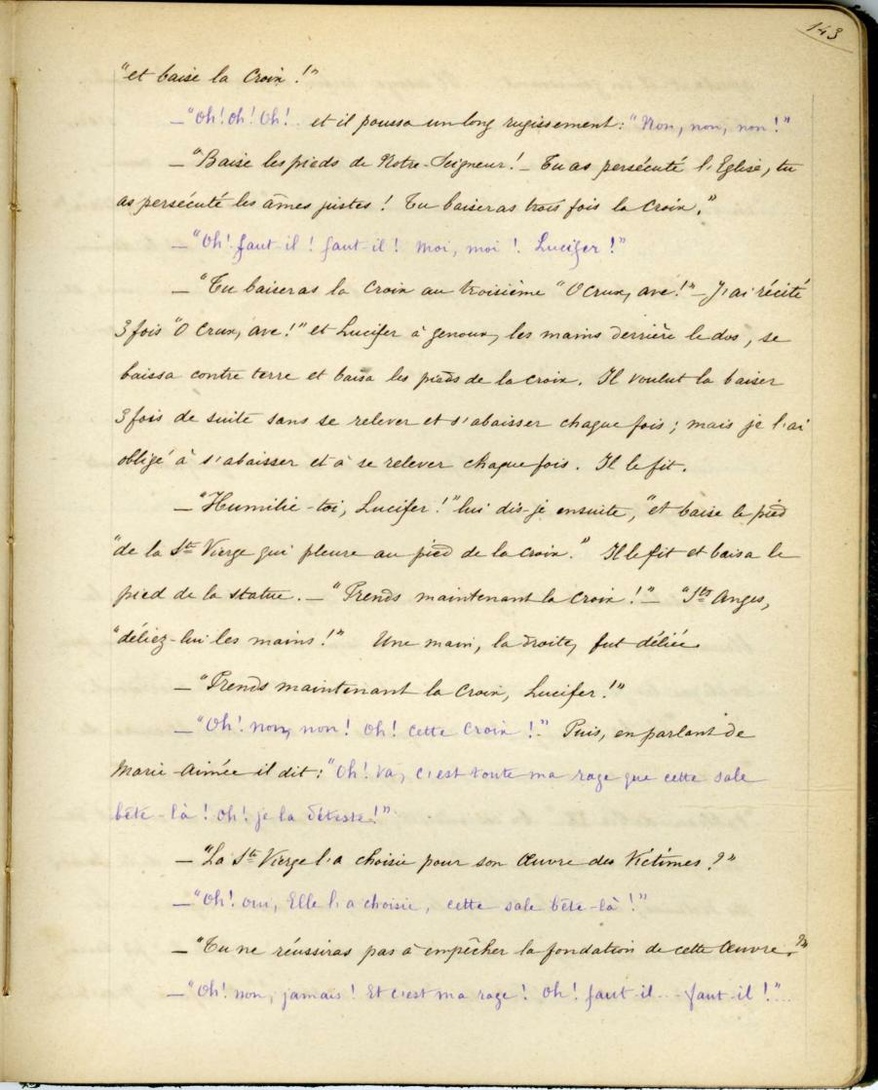 143
"et baise la Croix !"
_"Oh! Oh! Oh!.. et il poussa un long rugissement: "Non, non, non!"
_"Baise les pieds de Notre-Seigneur! _ Tu as persécuté l'Eglise, tu
as persécuté les âmes justes ! Tu baiseras trois fois la Croix."
_"Oh! faut-il ! faut-il ! Moi, moi ! Lucifer !"
_"Tu baiseras la Croix au troisième "O Crux, ave!" _ J'ai récité
3 fois "O Crux, ave!" et Lucifer à genoux, les mains derrière le dos, se
baissa contre terre et baisa les pieds de la Croix. Il voulut la baiser
3 fois de suite sans se relever et s'abaisser chaque fois ; mais je l'ai
obligé à s'abaisser et à se relever chaque fois. Il le fit.
_"Humilie-toi, Lucifer!" lui dis-je ensuite, "et baise le pied
"de la Ste Vierge qui pleure au pied de la Croix." Il le fit et baisa le
pied de la statue. _ "Prends maintenant la Croix !" _ "Sts Anges,
"déliez-lui les mains !" Une main, la droite, fut déliée.
_"Prends maintenant la Croix, Lucifer !"
_"Oh! non, non ! Oh! cette Croix !." Puis, en parlant de
Marie-Aimée il dit : "Oh! va, c'est toute ma rage que cette sale
bête-là ! Oh! je la déteste!"
_"La Ste Vierge l'a choisie pour son Œuvre des Victimes ?"
_"Oh! oui, Elle l'a choisie, cette sale bête-là !"
_"Tu ne réussiras pas à empêcher la fondation de cette Œuvre.?"
_"Oh! non, jamais ! Et c'est ma rage ! Oh! faut-il... faut-il !"..